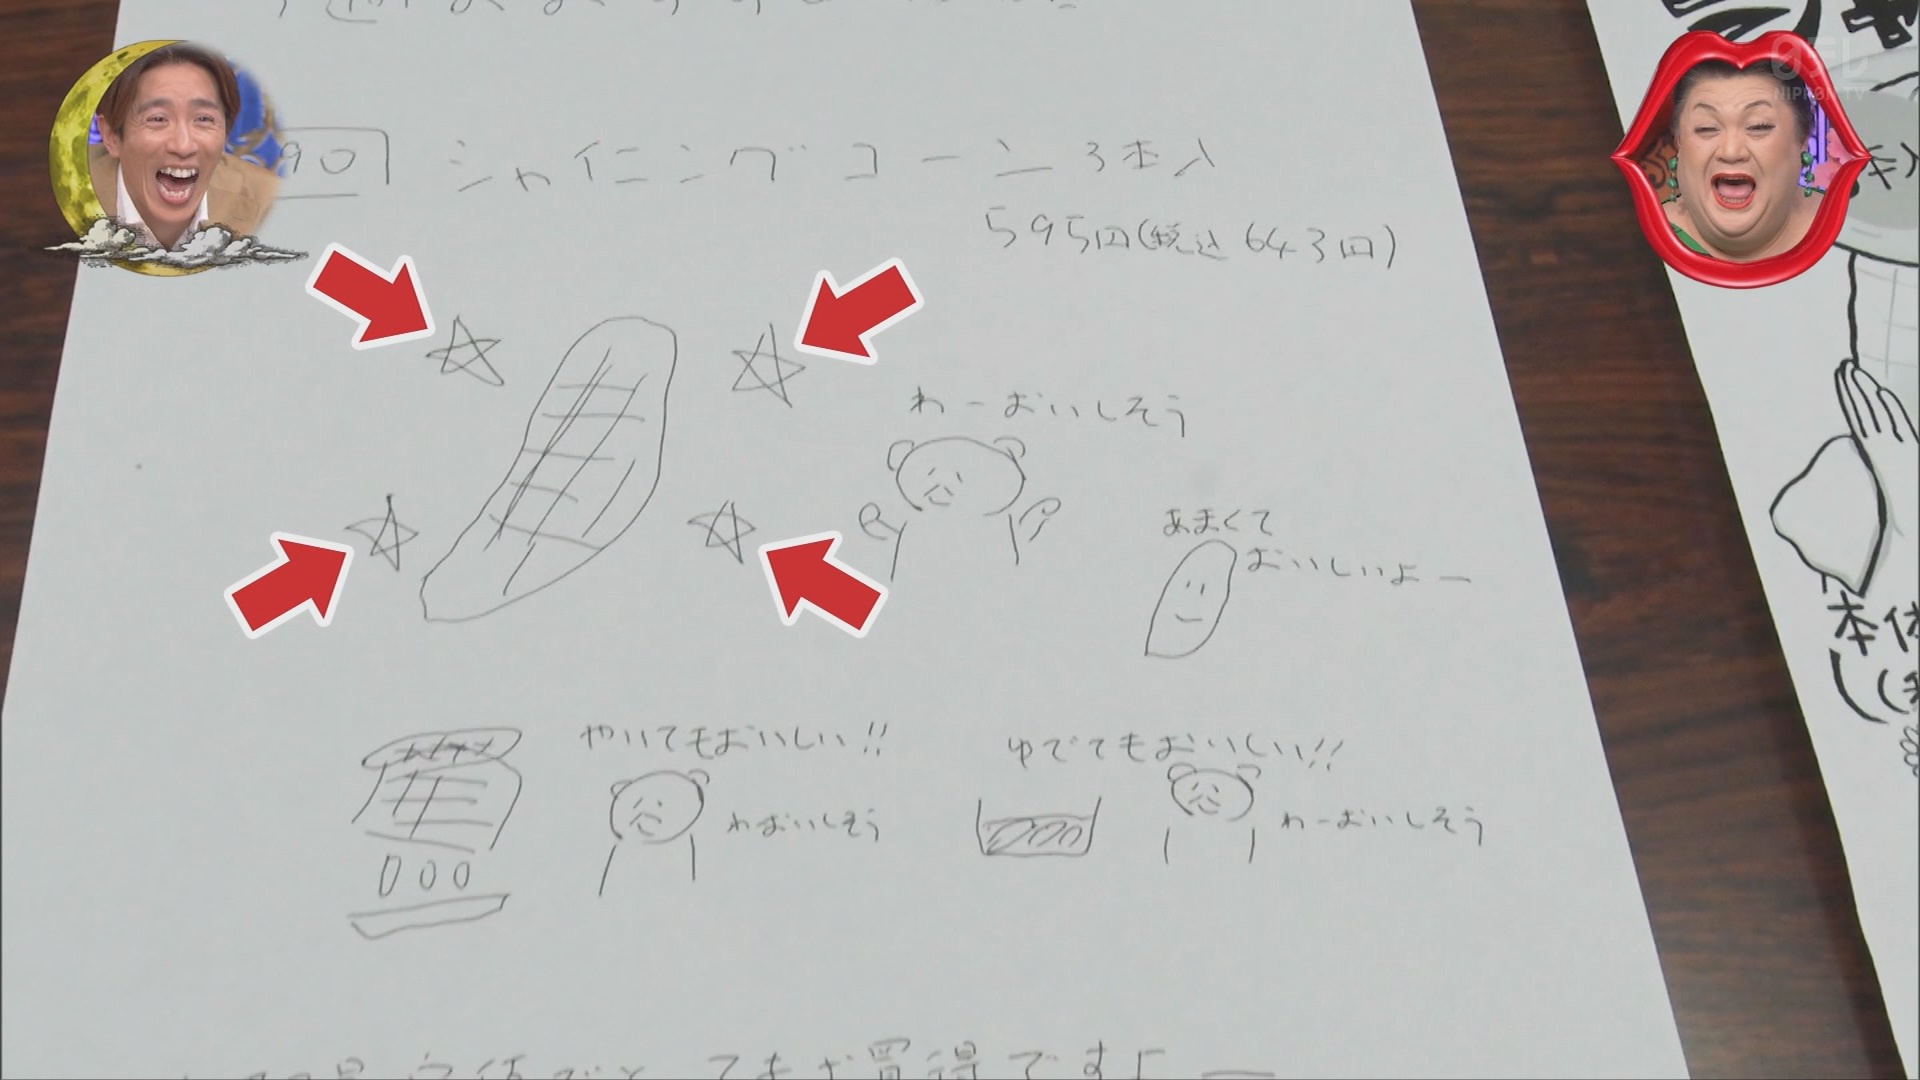 日テレ
NIPPON TV
90
シャイニングコーン 3本入
595円(税込643円)
わーおいしそう
あまくて
おいしいよー
やいてもおいしい!!
ゆでてもおいしい!!
わおいしそう
わーおいしそう
本体
てもお買得ですよー